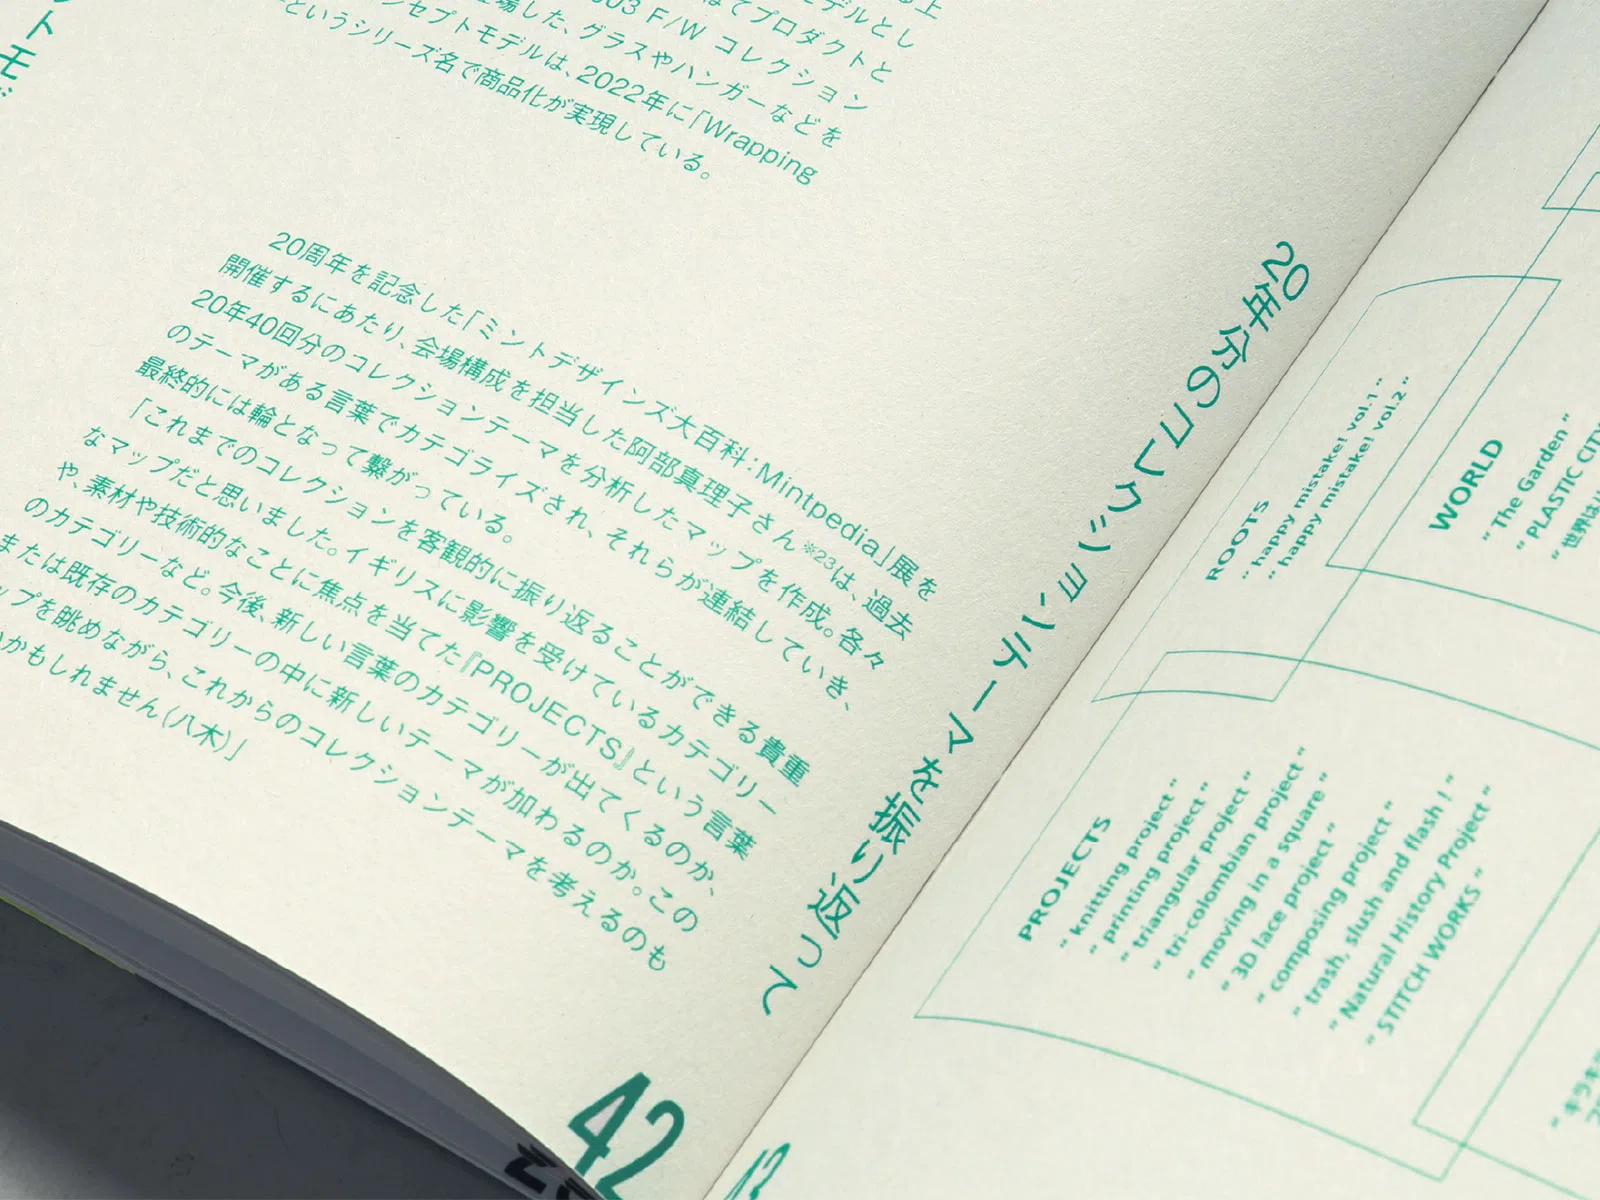 ルとし
はてプロダクトと
03 F/W コレクション
場した、グラスやハンガーなどを
ンセプトモデルは、2022年に「Wrapping
というシリーズ名で商品化が実現している。
トモ
20周年を記念した「ミントデザインズ大百科:Mintpedia」展を
開催するにあたり、会場構成を担当した阿部真理子さん※23は、過去
20年40回分のコレクションテーマを分析したマップを作成。各々
のテーマがある言葉でカテゴライズされ、それらが連結していき、
最終的には輪となって繋がっている。
「これまでのコレクションを客観的に振り返ることができる貴重
なマップだと思いました。イギリスに影響を受けているカテゴリー
や、素材や技術的なことに焦点を当てた『PROJECTS』という言葉
のカテゴリーなど。今後、新しい言葉のカテゴリーが出てくるのか、
または既存のカテゴリーの中に新しいテーマが加わるのか。この
ップを眺めながら、これからのコレクションテーマを考えるのも
かもしれません(八木)」
20年分のコレクションテーマを振り返って
42
43
ROOTS
" happy mistake! vol.1 "
" happy mistake! vol.2 "
WORLD
" The Garden "
" PLASTIC CITY
" 世界は
PROJECTS
" knitting project "
" printing project "
" triangular project "
" tri-colombian project "
" moving in a square "
" 3D lace project "
" composing project "
" trash, slush and flash ! "
" Natural History Project "
" STITCH WORKS "
" キラキ